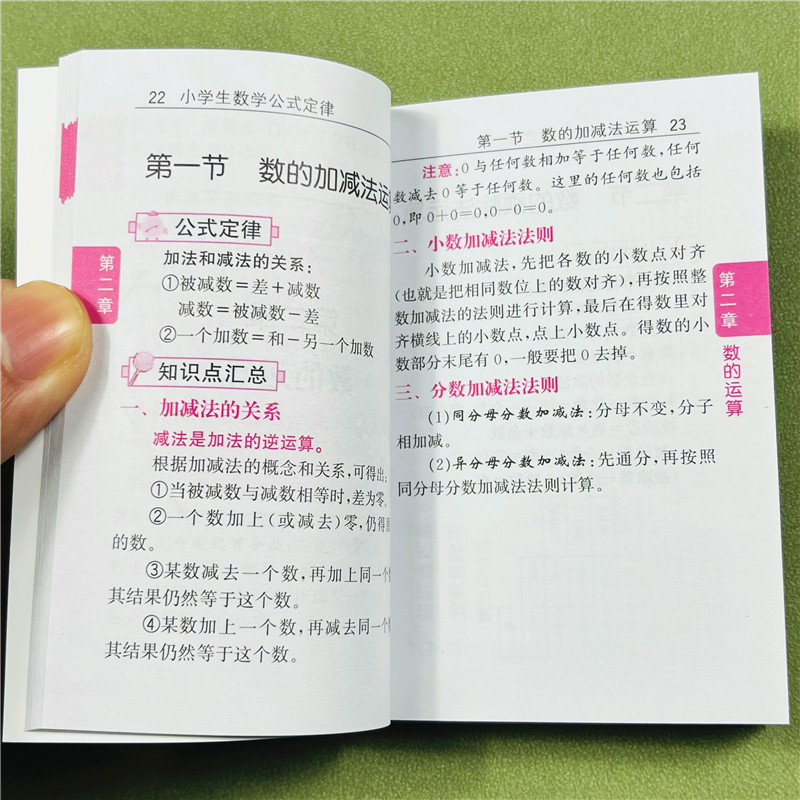 22 小学生数学公式定律
第一节 数的加减法运
公式定律
第二章
加法和减法的关系:
①被减数=差+减数
减数=被减数-差
②一个加数=和-另一个加数
知识点汇总
一、加减法的关系
减法是加法的逆运算。
根据加减法的概念和关系,可得出:
①当被减数与减数相等时,差为零。
②一个数加上(或减去)零,仍得
的数。
③某数减去一个数,再加上同一个
其结果仍然等于这个数。
④某数加上一个数,再减去同一
其结果仍然等于这个数。
第一节 数的加减法运算 23
注意:0与任何数相加等于任何数,任何
数减去0等于任何数。这里的任何数也包括
0,即0+0=0,0-0=0。
二、小数加减法法则
小数加减法,先把各数的小数点对齐
(也就是把相同数位上的数对齐),再按照整
数加减法的法则进行计算,最后在得数里对
齐横线上的小数点,点上小数点。得数的小
数部分末尾有0,一般要把0去掉。
三、分数加减法法则
(1)同分母分数加减法:分母不变,分子
相加减。
(2)异分母分数加减法:先通分,再按照
同分母分数加减法法则计算。
第二章
数的运算